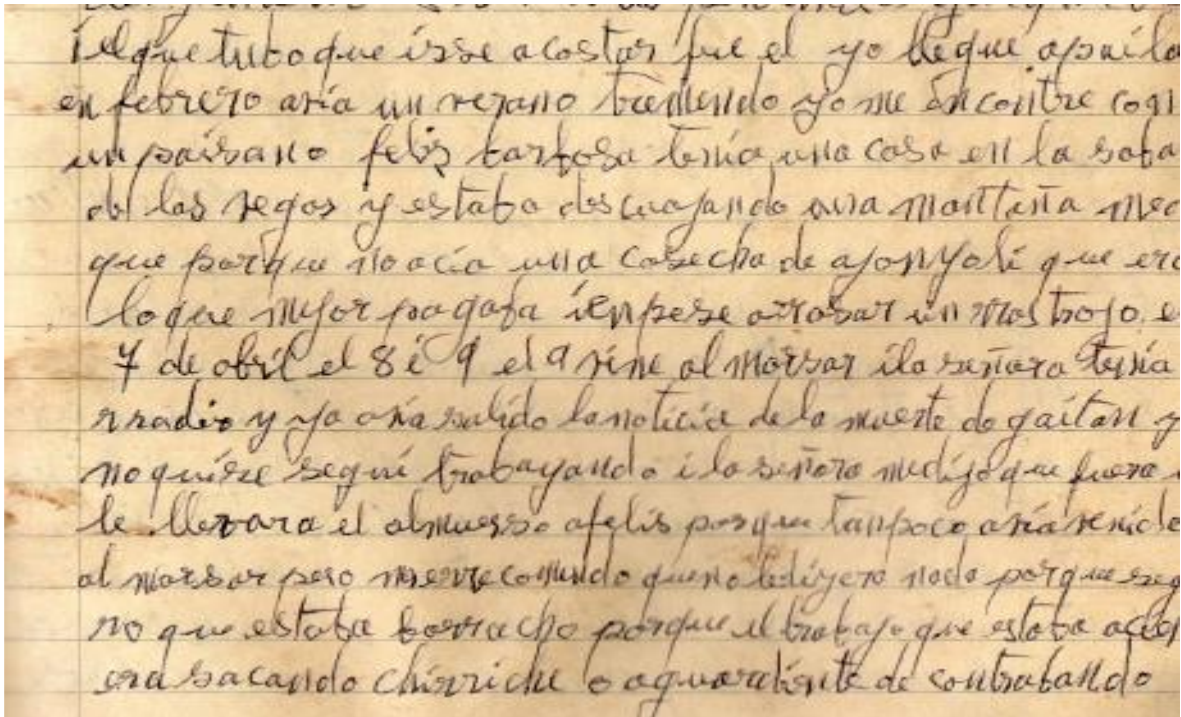 i el que tubo que irse acostar fue el yo llegue apaila
en febrero avia un verano tremendo yo me encontre con
un paisano felis barbosa tenia una casa en la saba
de las vegas y estaba descuajando una montaña me
que porque no acia una cosecha de ajonjoli que era
lo que mejor pagaba i enpese arrosar un rrastrojo e
7 de abril el 8 i 9 el 9 vine al morsar i la señora tenia
rradio y ya avia salido la noticia de la muerte de gaitan y
no quise segui trabayando i la señora medijo que fuera
le llevara el almuerso afelis porque tanpoco avia venido
al morsar pero me rrecomendo que no ledijera nada porque seg
no que estaba borracho porque el trabajo que estaba acien
era sacando chirriche o aguardiente de contrabando